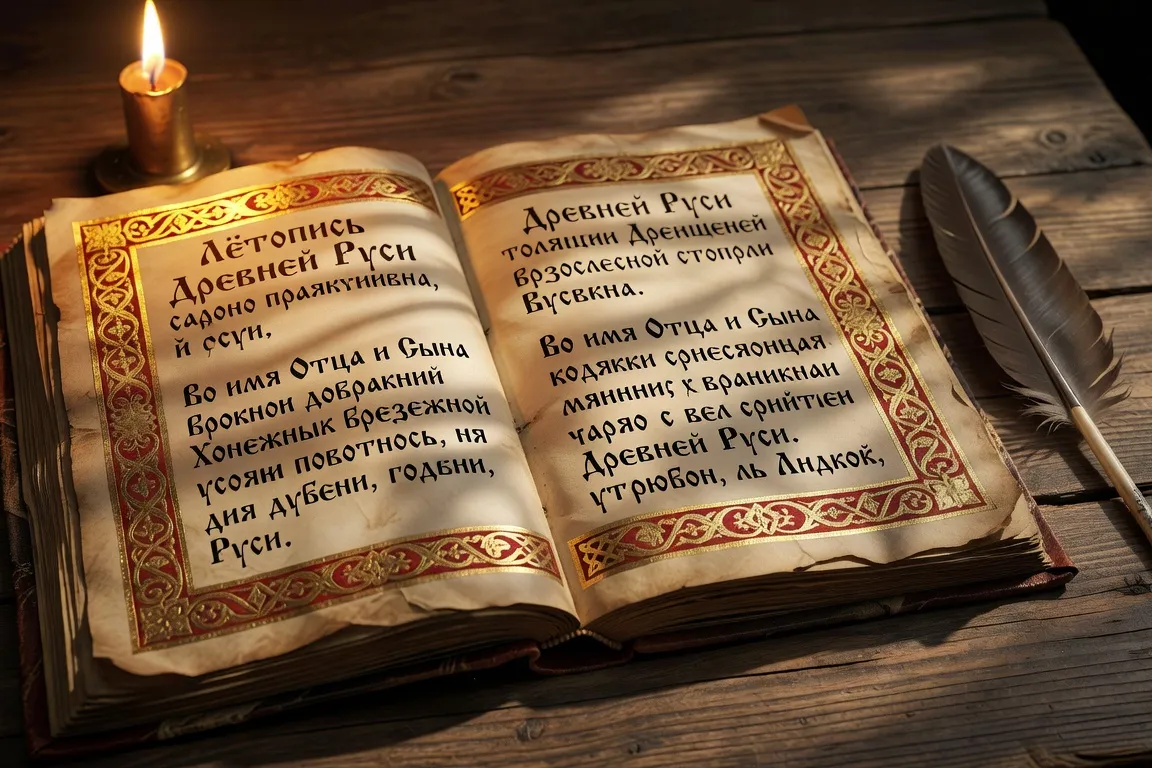 Лётопись
Древней Руси
сароно праякуинвна,
й ссуи,
Во имя Отца и Сына
врокнои довракний
Хонежнык Брезежной
усояи повотнось, ня
дия дубени, годѣни,
Руси.
Древней Руси
толящии Дреищеней
брзослесной стопрли
Вусвкна.
Во имя Отца и Сына
кодякки срнесяонцая
мянниіс х враникнаи
чаряо с вел срийтіен
Древней Руси.
утрювон, ль Лндкой,